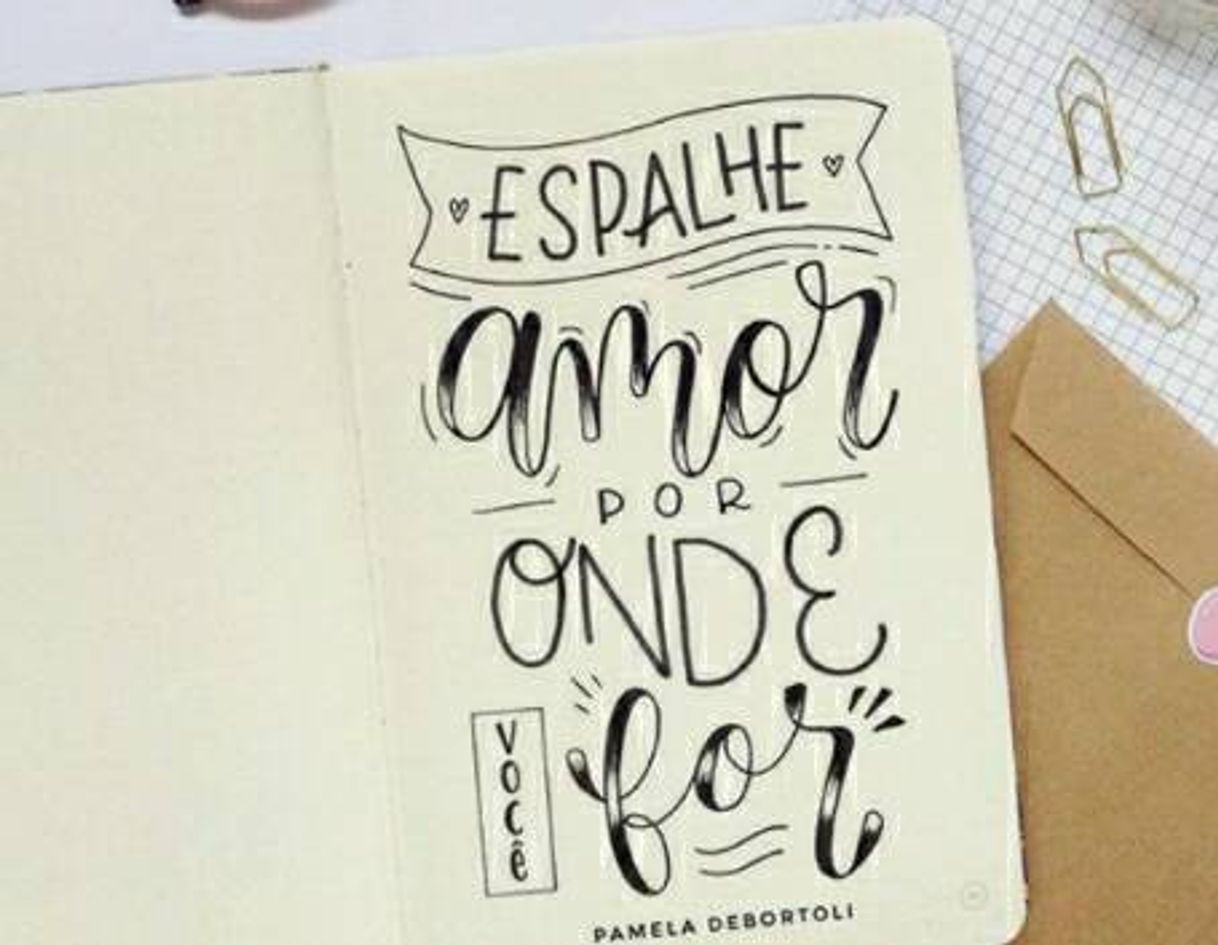 ESPALHE
amor
POR
ONDE
você for
PAMELA DEBORTOLI